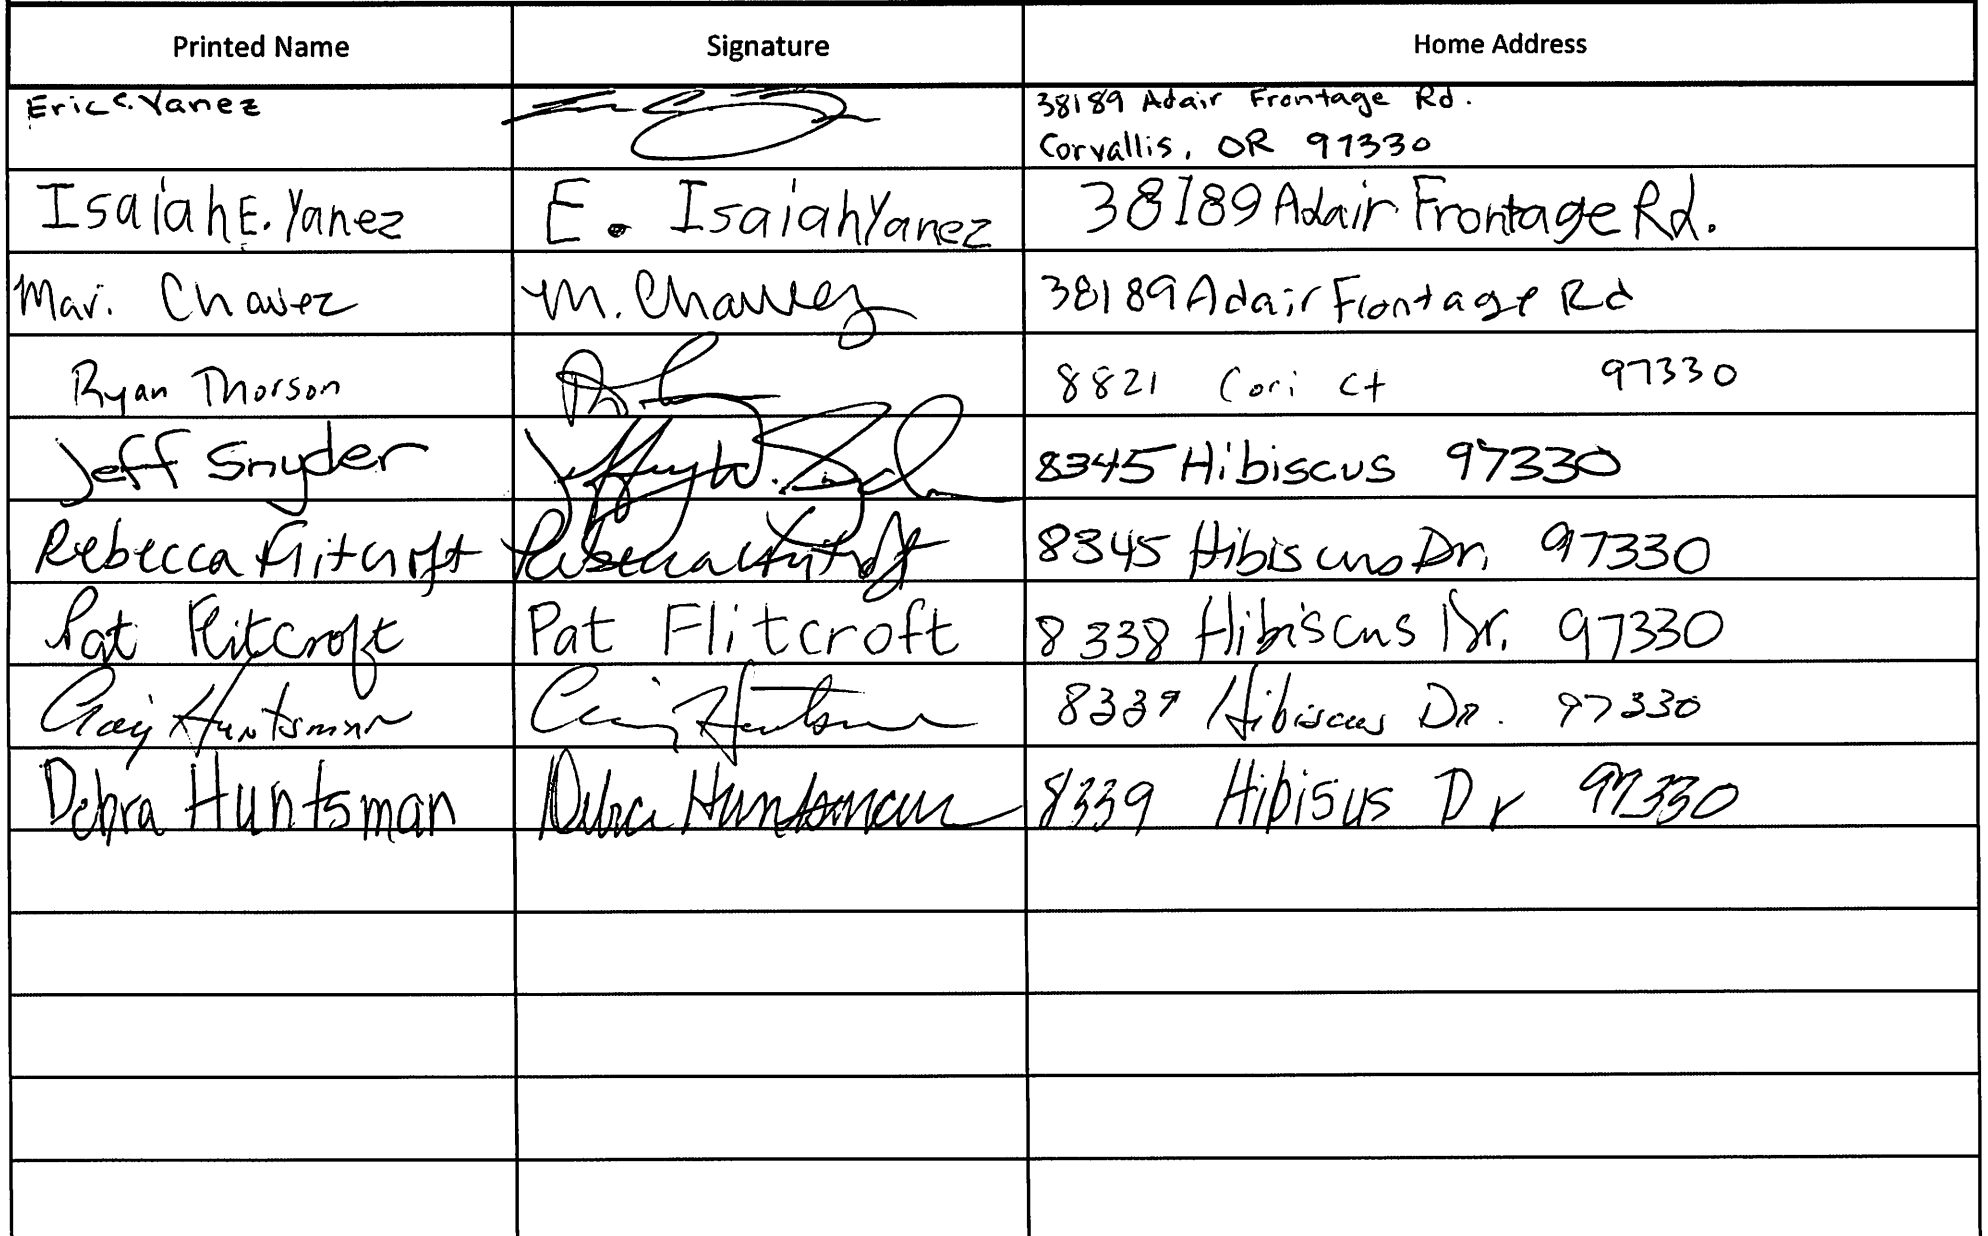 Printed Name Signature Home Address
Eric C. Yanez 38189 Adair Frontage Rd.
Corvallis, OR 97330
Isaiah E. Yanez E. Isaiah Yanez 38189 Adair Frontage Rd.
Mari. Chavez M. Chavez 38189 Adair Frontage Rd
Ryan Thorson 8821 Cori Ct 97330
Jeff Snyder Jeffrey W. 8345 Hibiscus 97330
Rebecca Flitcroft Rebecca Flitcroft 8345 Hibiscus Dr. 97330
Pat Flitcroft Pat Flitcroft 8338 Hibiscus Dr. 97330
Craig Huntsman Craig Huntsman 8339 Hibiscus Dr. 97330
Debra Huntsman Debra Huntsman 8339 Hibisus Dr 97330